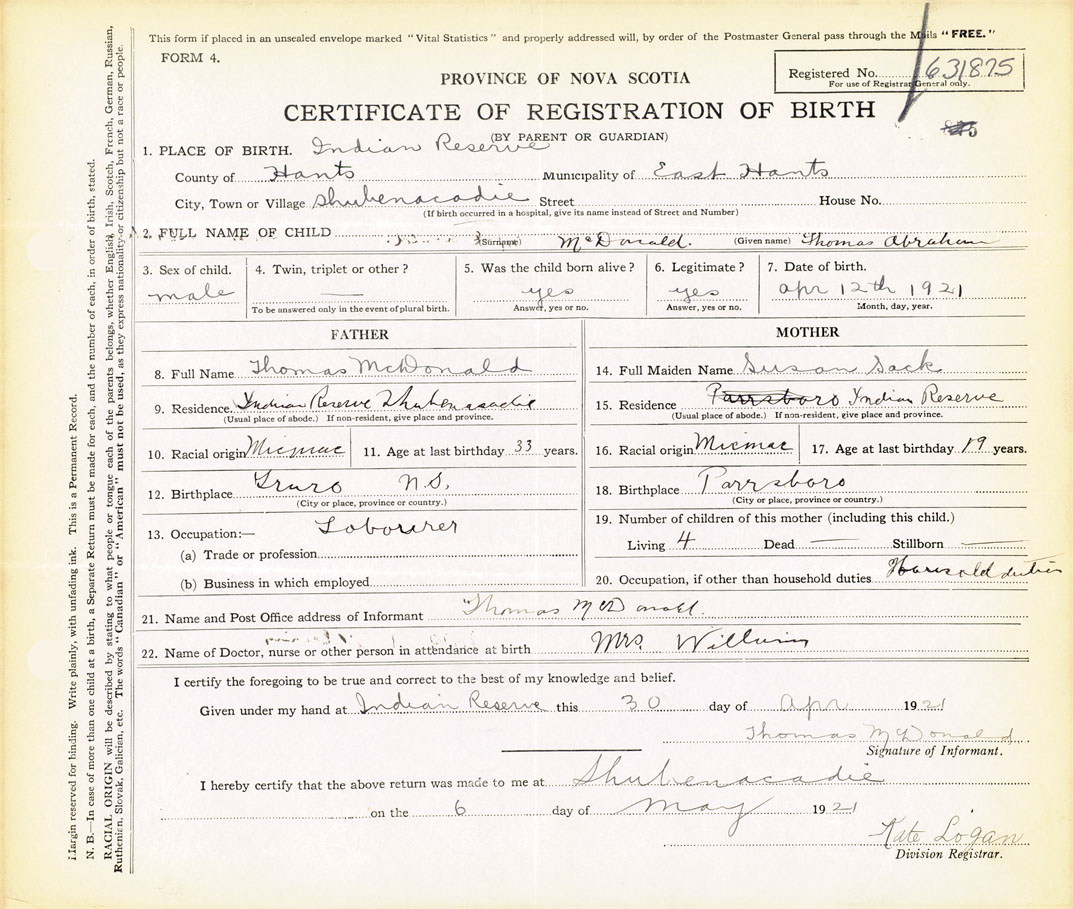 This form if placed in an unsealed envelope marked "Vital Statistics" and properly addressed will, by order of the Postmaster General pass through the Mails "FREE."
FORM 4.
Registered No. 631875
For use of Registrar General only.
PROVINCE OF NOVA SCOTIA
CERTIFICATE OF REGISTRATION OF BIRTH
(BY PARENT OR GUARDIAN)
1. PLACE OF BIRTH. Indian Reserve
County of Hants Municipality of East Hants
City, Town or Village Shubenacadie Street House No.
(If birth occurred in a hospital, give its name instead of Street and Number)
2. FULL NAME OF CHILD (Surname) McDonald. (Given name) Thomas Abraham
3. Sex of child. 4. Twin, triplet or other? 5. Was the child born alive? 6. Legitimate? 7. Date of birth.
male — yes yes apr 12th 1921
To be answered only in the event of plural birth. Answer, yes or no. Answer, yes or no. Month, day, year.
FATHER
8. Full Name Thomas McDonald
9. Residence. Indian Reserve Shubenacadie
(Usual place of abode.) If non-resident, give place and province.
10. Racial origin Micmac 11. Age at last birthday 33 years.
12. Birthplace Truro N.S.
(City or place, province or country.)
13. Occupation:— Labourer
(a) Trade or profession
(b) Business in which employed
MOTHER
14. Full Maiden Name Susan Sack
15. Residence Parrsboro Indian Reserve
(Usual place of abode.) If non-resident, give place and province.
16. Racial origin Micmac 17. Age at last birthday 19 years.
18. Birthplace Parrsboro
(City or place, province or country.)
19. Number of children of this mother (including this child.)
Living 4 Dead — Stillborn —
20. Occupation, if other than household duties Housold duties
21. Name and Post Office address of Informant Thomas McDonald.
22. Name of Doctor, nurse or other person in attendance at birth Mrs.
I certify the foregoing to be true and correct to the best of my knowledge and belief.
Given under my hand at Indian Reserve this 30 day of Apr 1921
Thomas McDonald
Signature of Informant.
I hereby certify that the above return was made to me at Shubenacadie
on the 6 day of May 1921
Kate Logan
Division Registrar.
Margin reserved for binding. Write plainly, with unfading ink. This is a Permanent Record.
N. B.—In case of more than one child at a birth, a Separate Return must be made for each, and the number of each, in order of birth, stated.
RACIAL ORIGIN will be described by stating to what people or tongue each of the parents belongs, whether English, Irish, Scotch, French, German, Russian,
Ruthenian, Slovak, Galician, etc. The words "Canadian" or "American" must not be used, as they express nationality or citizenship but not a race or people.